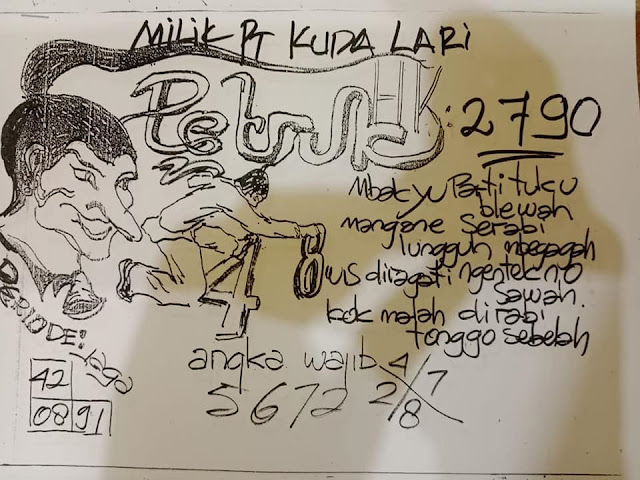 MILIK PT KUDA LARI
Petruk HK : 2790
Mbak yu Parti tuku
blewah
mangane serabi
lungguh mbegagah
wis diragati ngentekno
sawah.
kok malah dirabi
tonggo sebelah
4 8
PERIODE:
42
08 91
angka wajib
5672
4 7
2 8